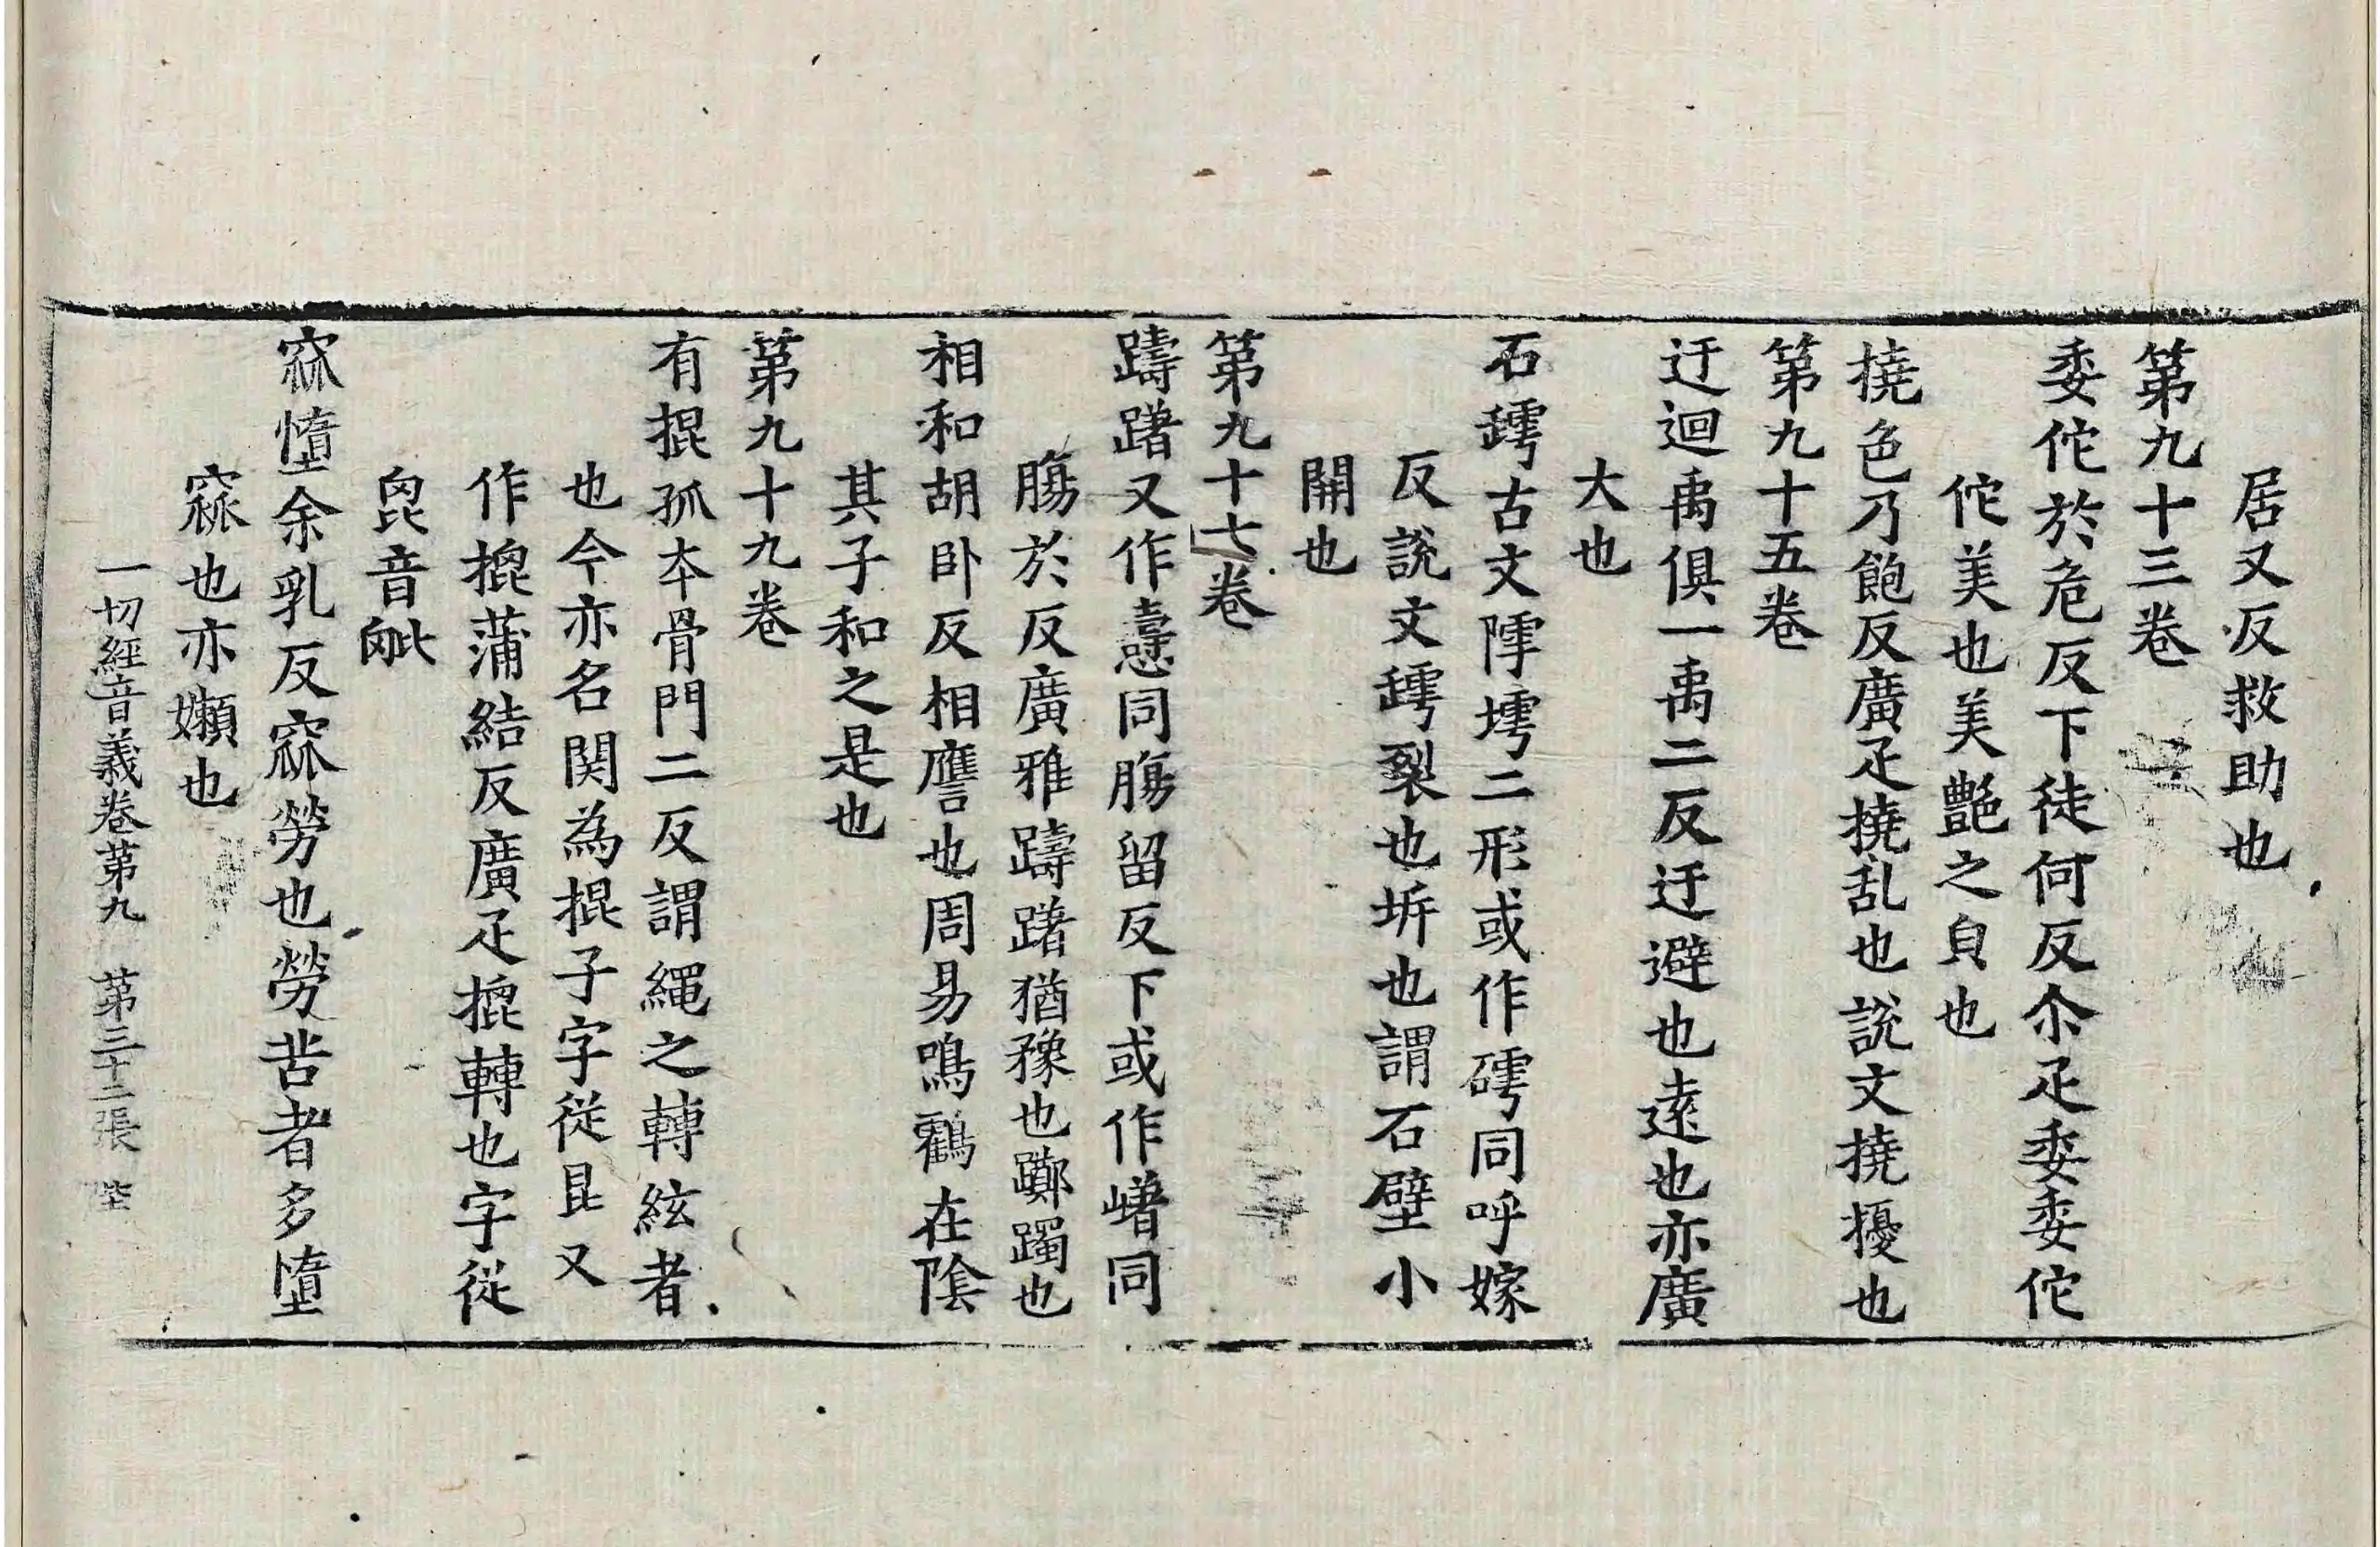 居又反救助也
第九十三卷
委佗於危反下徒何反尒疋委委佗
佗美也美艷之皃也
撓色乃飽反廣疋撓乱也說文撓擾也
第九十五卷
迂迴禹俱一禹二反迂避也遠也亦廣
大也
石罅古文㙤墟二形或作㗿同呼嫁
反說文罅裂也坼也謂石壁小
開也
第九十七卷
躊躇又作懤同腸留反下或作𡻪同
腸於反廣雅躊躇猶豫也躑躅也
相和胡卧反相譍也周易鳴鸖在陰
其子和之是也
第九十九卷
有掍孤本骨門二反謂繩之轉絃者
也今亦名関為掍子字從昆又
作㨽蒲結反廣疋㨽轉也字從
㲋音𣬉
窳憜余乳反窳勞也勞苦者多憜
窳也亦嬾也
一切經音義卷第九 第三十二張